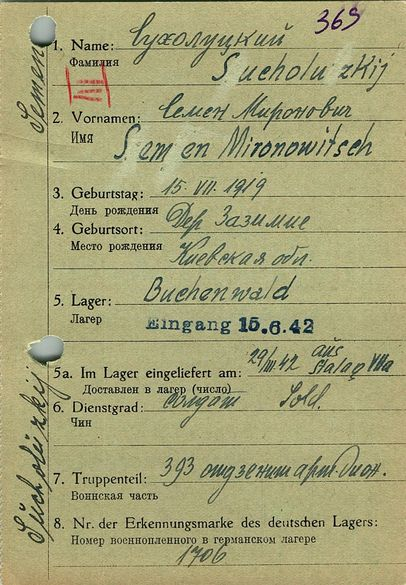 369
1. Name: Сухолуцкий
Фамилия
Sucholuzkij
III
2. Vornamen: Семен Миронович
Имя
Semen Mironowitsch
3. Geburtstag: 15. VII. 1919
День рождения
4. Geburtsort: Дер Зазимие
Место рождения
Киевская обл.
5. Lager: Buchenwald
Лагер
Eingang 15.6.42
5a. Im Lager eingeliefert am: 29/III.42 aus Stalag VIIa
Доставлен в лагер (число)
6. Dienstgrad: солдат Sold.
Чин
7. Truppenteil: 393 отдзенитарт. Дион.
Воинская часть
8. Nr. der Erkennungsmarke des deutschen Lagers:
Номер военнопленного в германском лагере
1706
Semen
Sucholuzkij